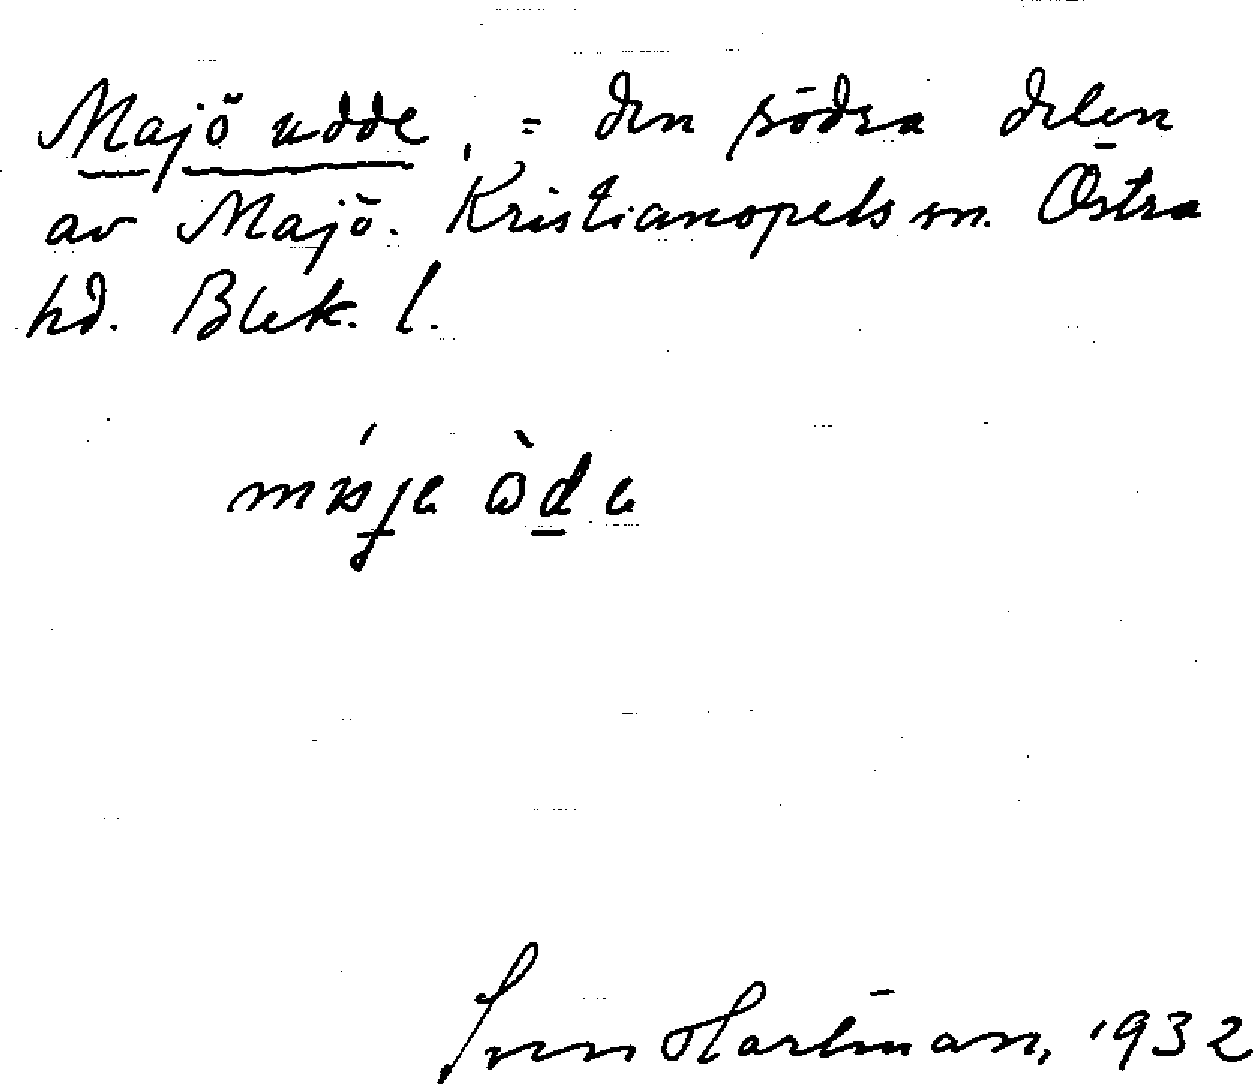 Majö udde, = den södra delen
av Majö. Kristianopels sn. Östra
hd. Blek. l.
Sven Hartman, 1932